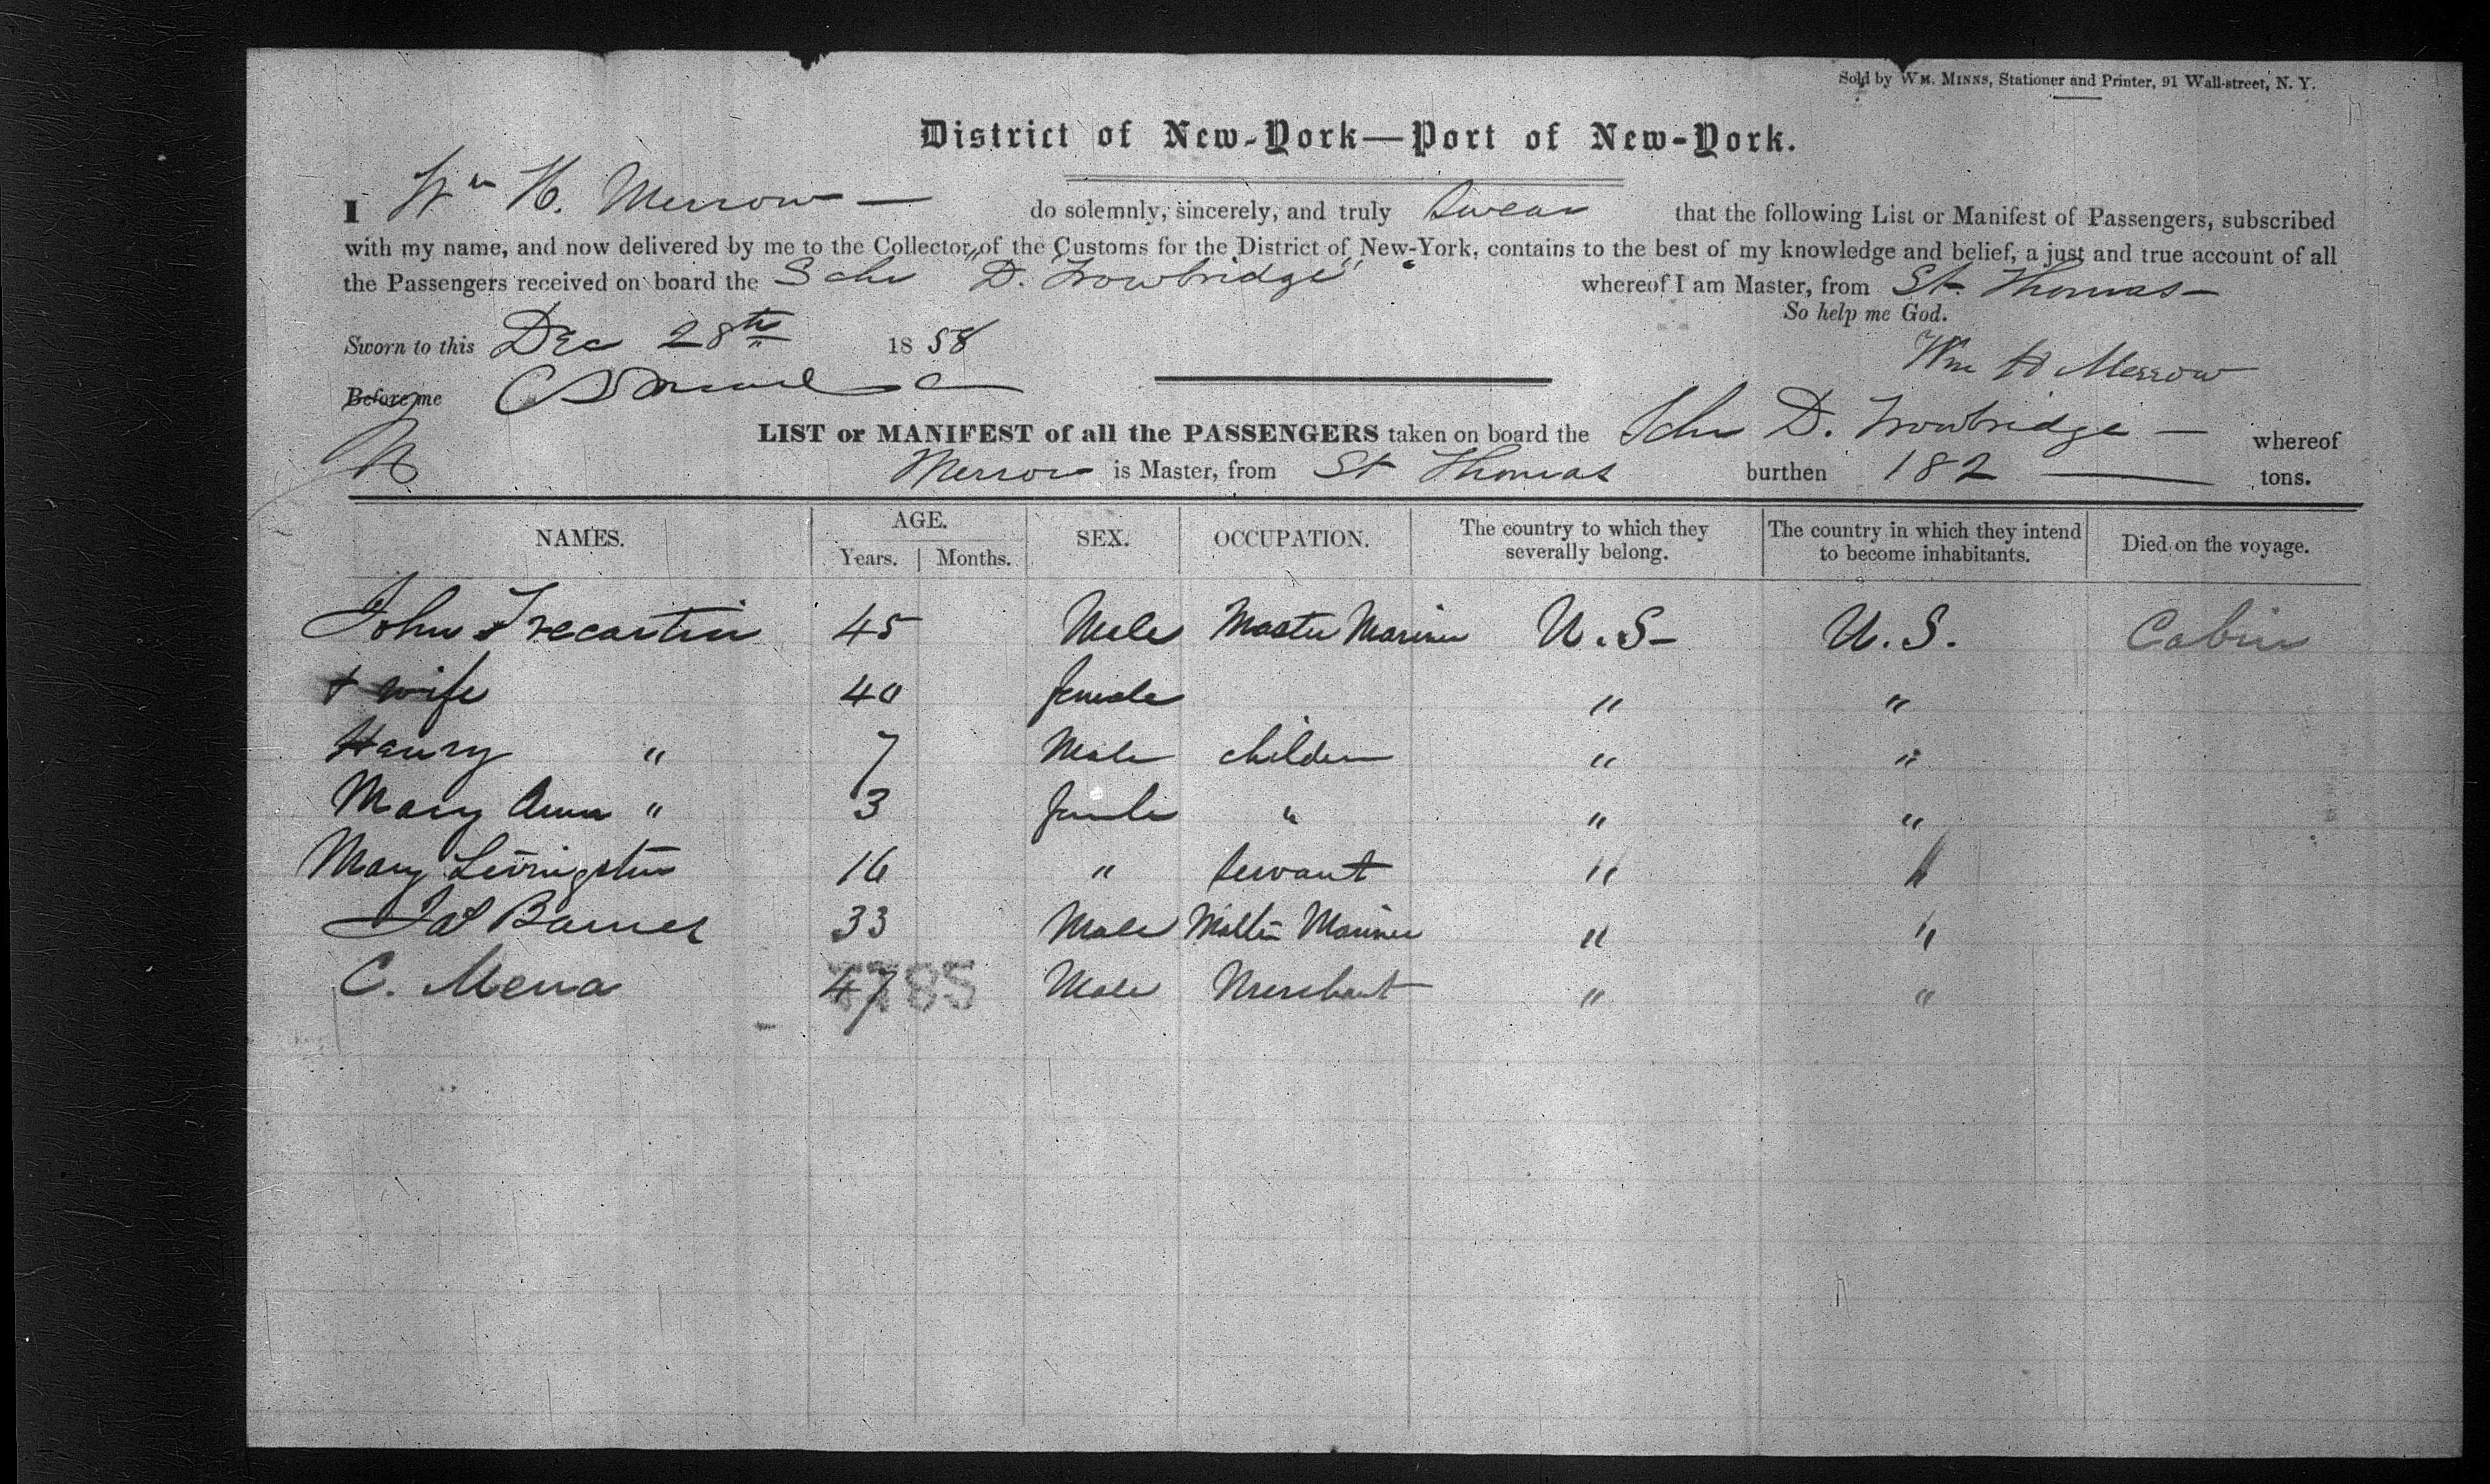 Sold by WM. MINNS, Stationer and Printer, 91 Wall-street, N. Y.
District of New-York—Port of New-York.
I Wm H. Merrow — do solemnly, sincerely, and truly Swear that the following List or Manifest of Passengers, subscribed
with my name, and now delivered by me to the Collector of the Customs for the District of New-York, contains to the best of my knowledge and belief, a just and true account of all
the Passengers received on board the Schr "D. Trowbridge" whereof I am Master, from St. Thomas —
So help me God.
Sworn to this Dec 28th 1858
Wm H Merrow
Before me
LIST or MANIFEST of all the PASSENGERS taken on board the Schr D. Trowbridge — whereof
Merrow is Master, from St Thomas burthen 182 — tons.
NAMES. AGE. Years. Months. SEX. OCCUPATION. The country to which they severally belong. The country in which they intend to become inhabitants. Died on the voyage.
John Trecartin 45 Male Master Mariner U.S- U.S. Cabin
+ wife 40 female " "
Henry " 7 Male children " "
Mary Anna " 3 female " " "
Mary Livingston 16 " Servant " "
Jas Barnes 33 Male Master Mariner " "
C. Mena 47 Male Merchant " "